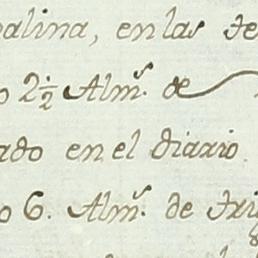 palina, en las te
o 2½ Alm.ˢ de
ado en el diario
o 6. Alm.ˢ de tri
8